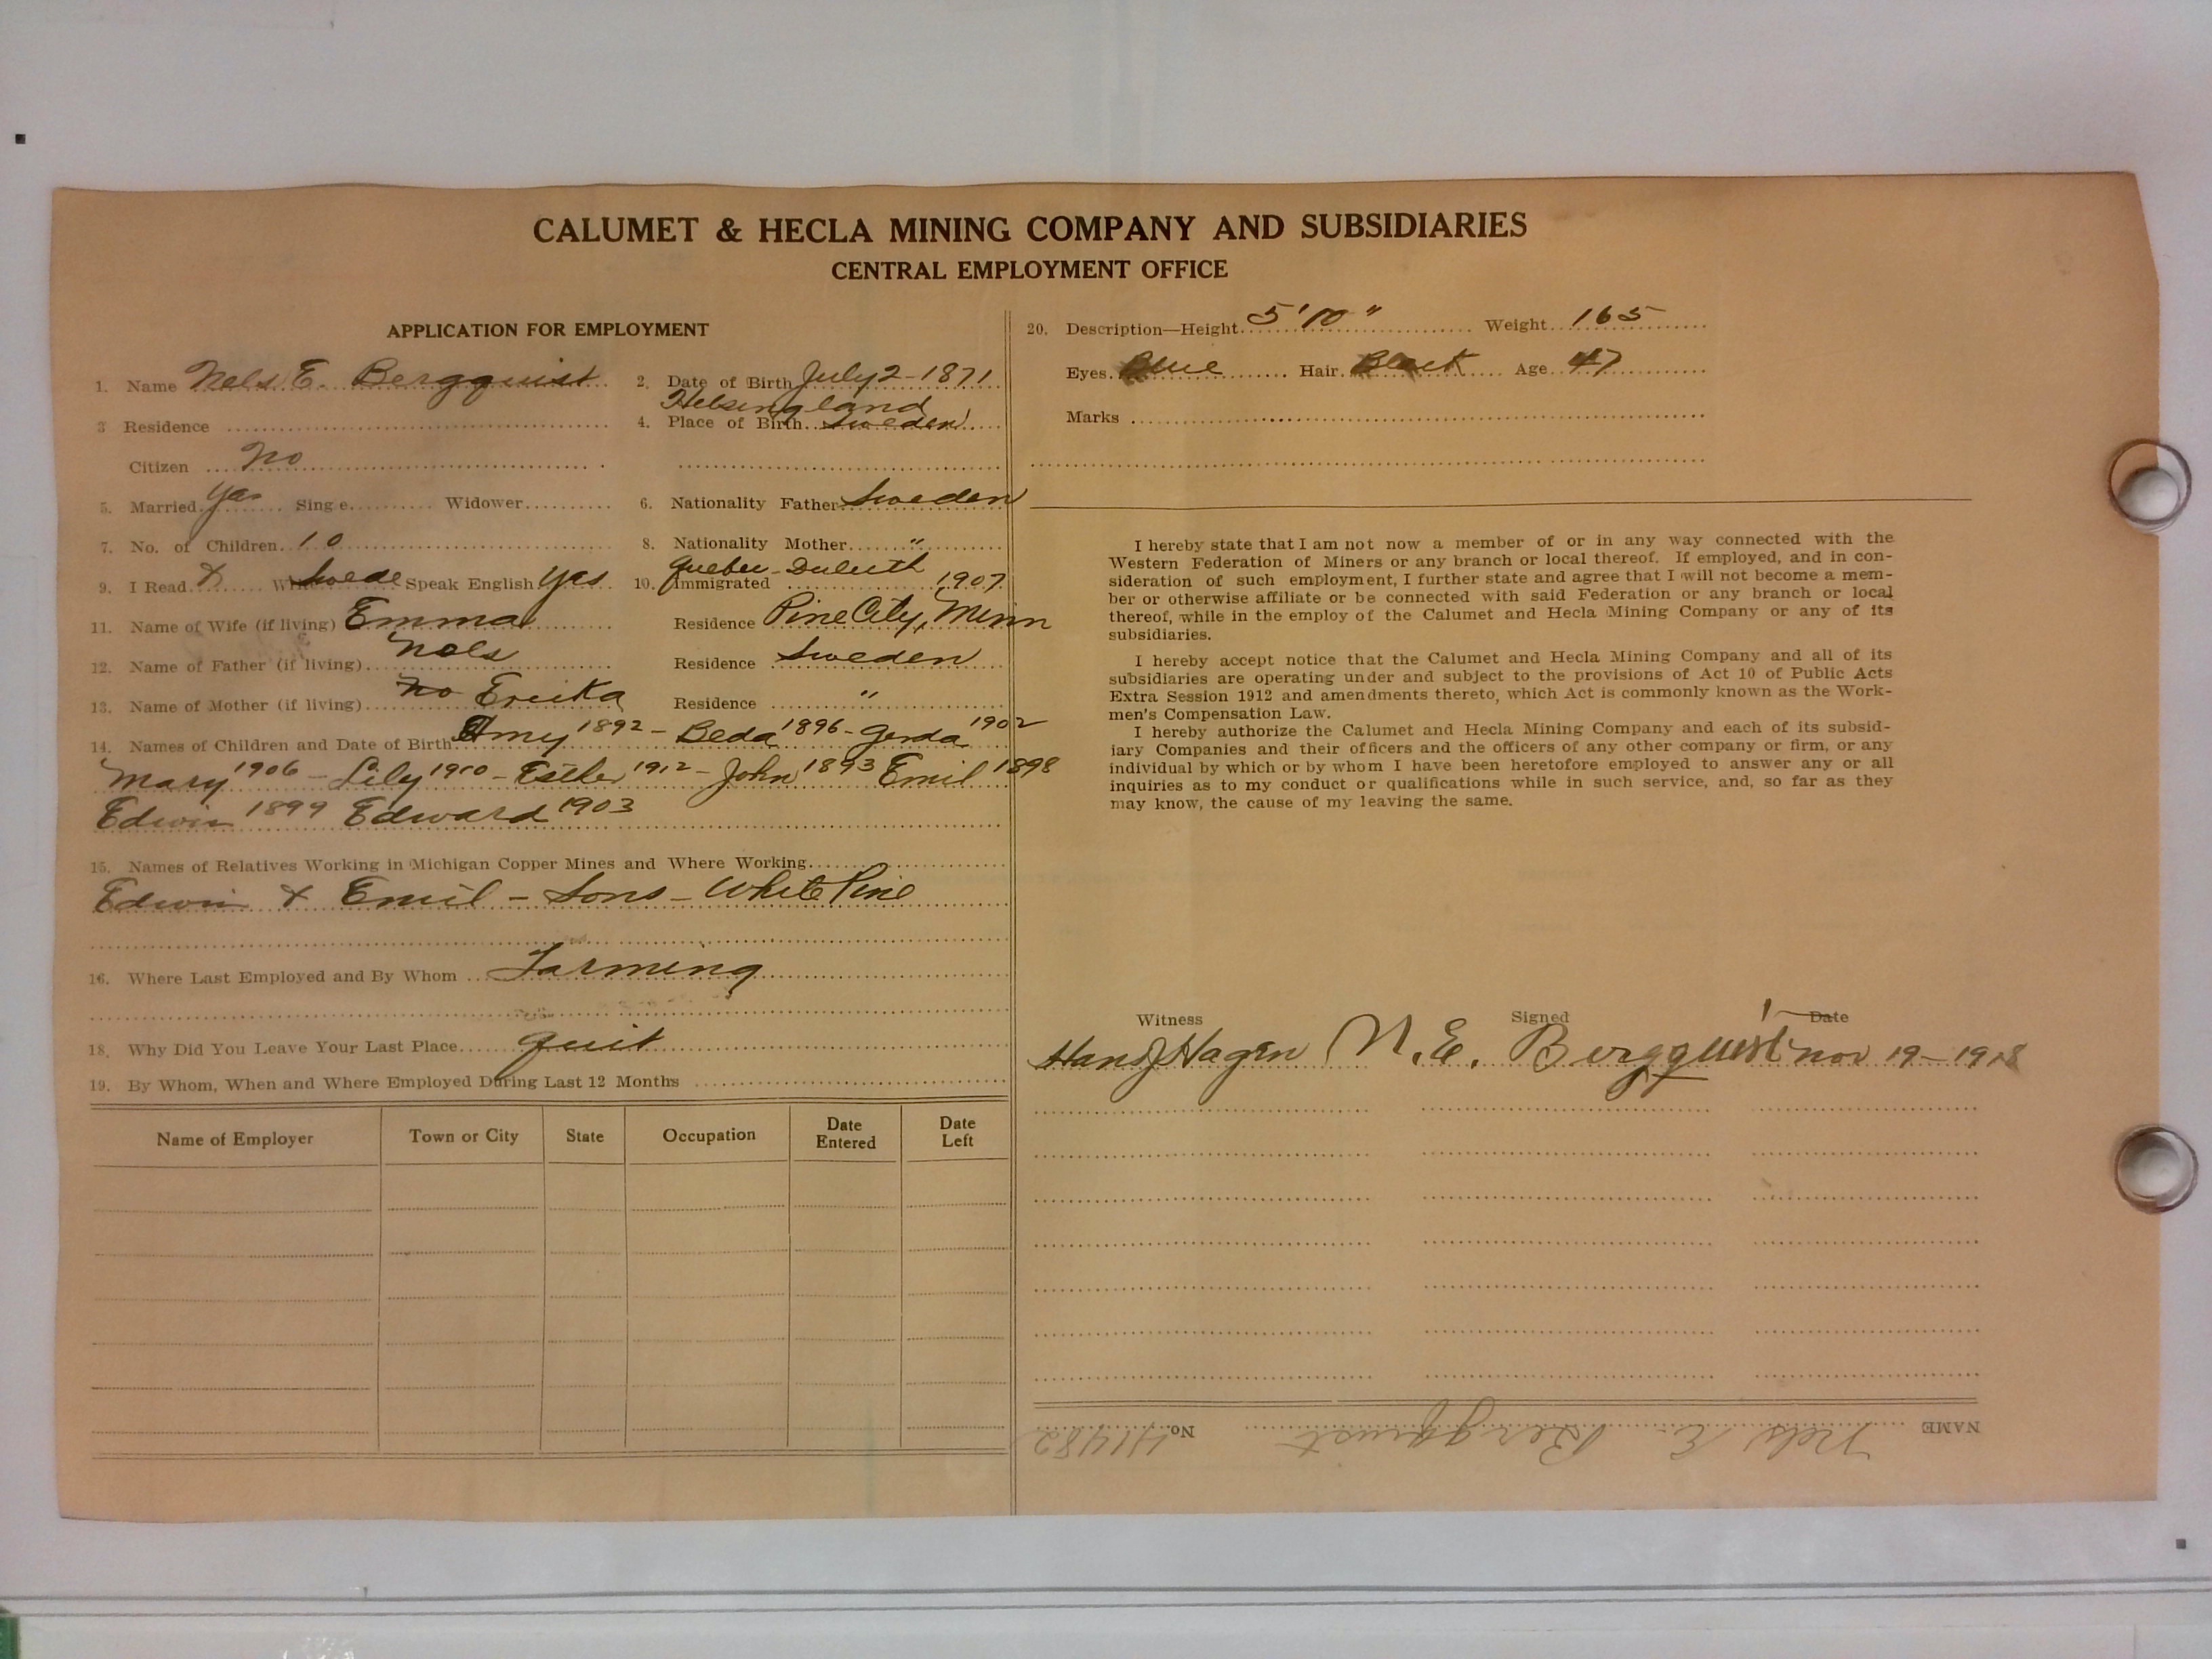 CALUMET & HECLA MINING COMPANY AND SUBSIDIARIES
CENTRAL EMPLOYMENT OFFICE
APPLICATION FOR EMPLOYMENT
1. Name Nels E. Bergquist 2. Date of Birth July 2-1871
Helsingland
3 Residence 4. Place of Birth Sweden
Citizen No
5. Married Yes Sing e Widower 6. Nationality Father Sweden
7. No. of Children 10 8. Nationality Mother "
Quebec - Duluth
9. I Read & Write Swede Speak English Yes 10. Immigrated 1907
11. Name of Wife (if living) Emma Residence Pine City, Minn
12. Name of Father (if living) Nels Residence Sweden
13. Name of Mother (if living) no Erika Residence "
14. Names of Children and Date of Birth Amy 1892 - Beda 1896 - Gerda 1902
Mary 1906 - Lily 1910 - Esther 1912 - John 1893 Emil 1898
Edwin 1899 Edward 1903
15. Names of Relatives Working in Michigan Copper Mines and Where Working
Edwin & Emil - Sons - White Pine
16. Where Last Employed and By Whom Farming
18. Why Did You Leave Your Last Place quit
19. By Whom, When and Where Employed During Last 12 Months
Name of Employer Town or City State Occupation Date Entered Date Left
20. Description—Height 5'10" Weight 165
Eyes Blue Hair Black Age 47
Marks
I hereby state that I am not now a member of or in any way connected with the
Western Federation of Miners or any branch or local thereof. If employed, and in con-
sideration of such employment, I further state and agree that I will not become a mem-
ber or otherwise affiliate or be connected with said Federation or any branch or local
thereof, while in the employ of the Calumet and Hecla Mining Company or any of its
subsidiaries.
I hereby accept notice that the Calumet and Hecla Mining Company and all of its
subsidiaries are operating under and subject to the provisions of Act 10 of Public Acts
Extra Session 1912 and amendments thereto, which Act is commonly known as the Work-
men's Compensation Law.
I hereby authorize the Calumet and Hecla Mining Company and each of its subsid-
iary Companies and their officers and the officers of any other company or firm, or any
individual by which or by whom I have been heretofore employed to answer any or all
inquiries as to my conduct or qualifications while in such service, and, so far as they
may know, the cause of my leaving the same.
Witness Signed Date
Hans J Hagen N. E. Bergquist Nov 19-1918
NAME Nels E. Bergquist No. 41482